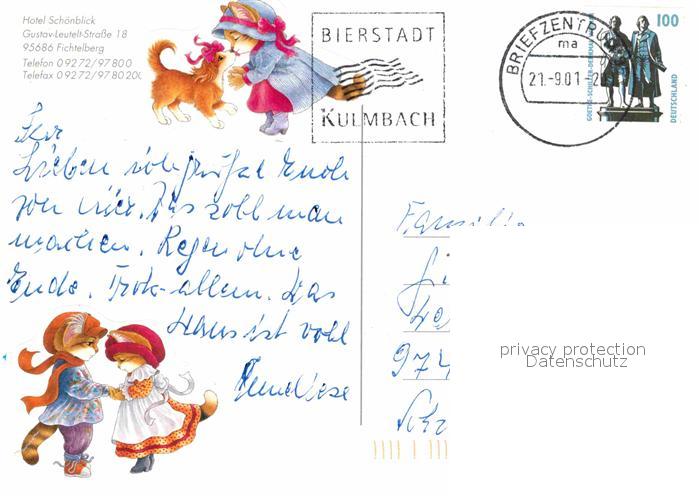 Hotel Schönblick
Gustav-Leutelt-Straße 18
95686 Fichtelberg
Telefon 0 92 72/97 80 0
Telefax 0 92 72/97 80 20
BIERSTADT
KULMBACH
BRIEFZENTRUM
ma
21.-9.01-2
100
GOETHE-SCHILLER-DENKMAL
DEUTSCHLAND
Ihr
Lieben viele Grüße Euch
von hier. Was soll man
machen. Regen ohne
Ende. Trotz-allem. Das
Haus ist voll
Familie
974
privacy protection
Datenschutz